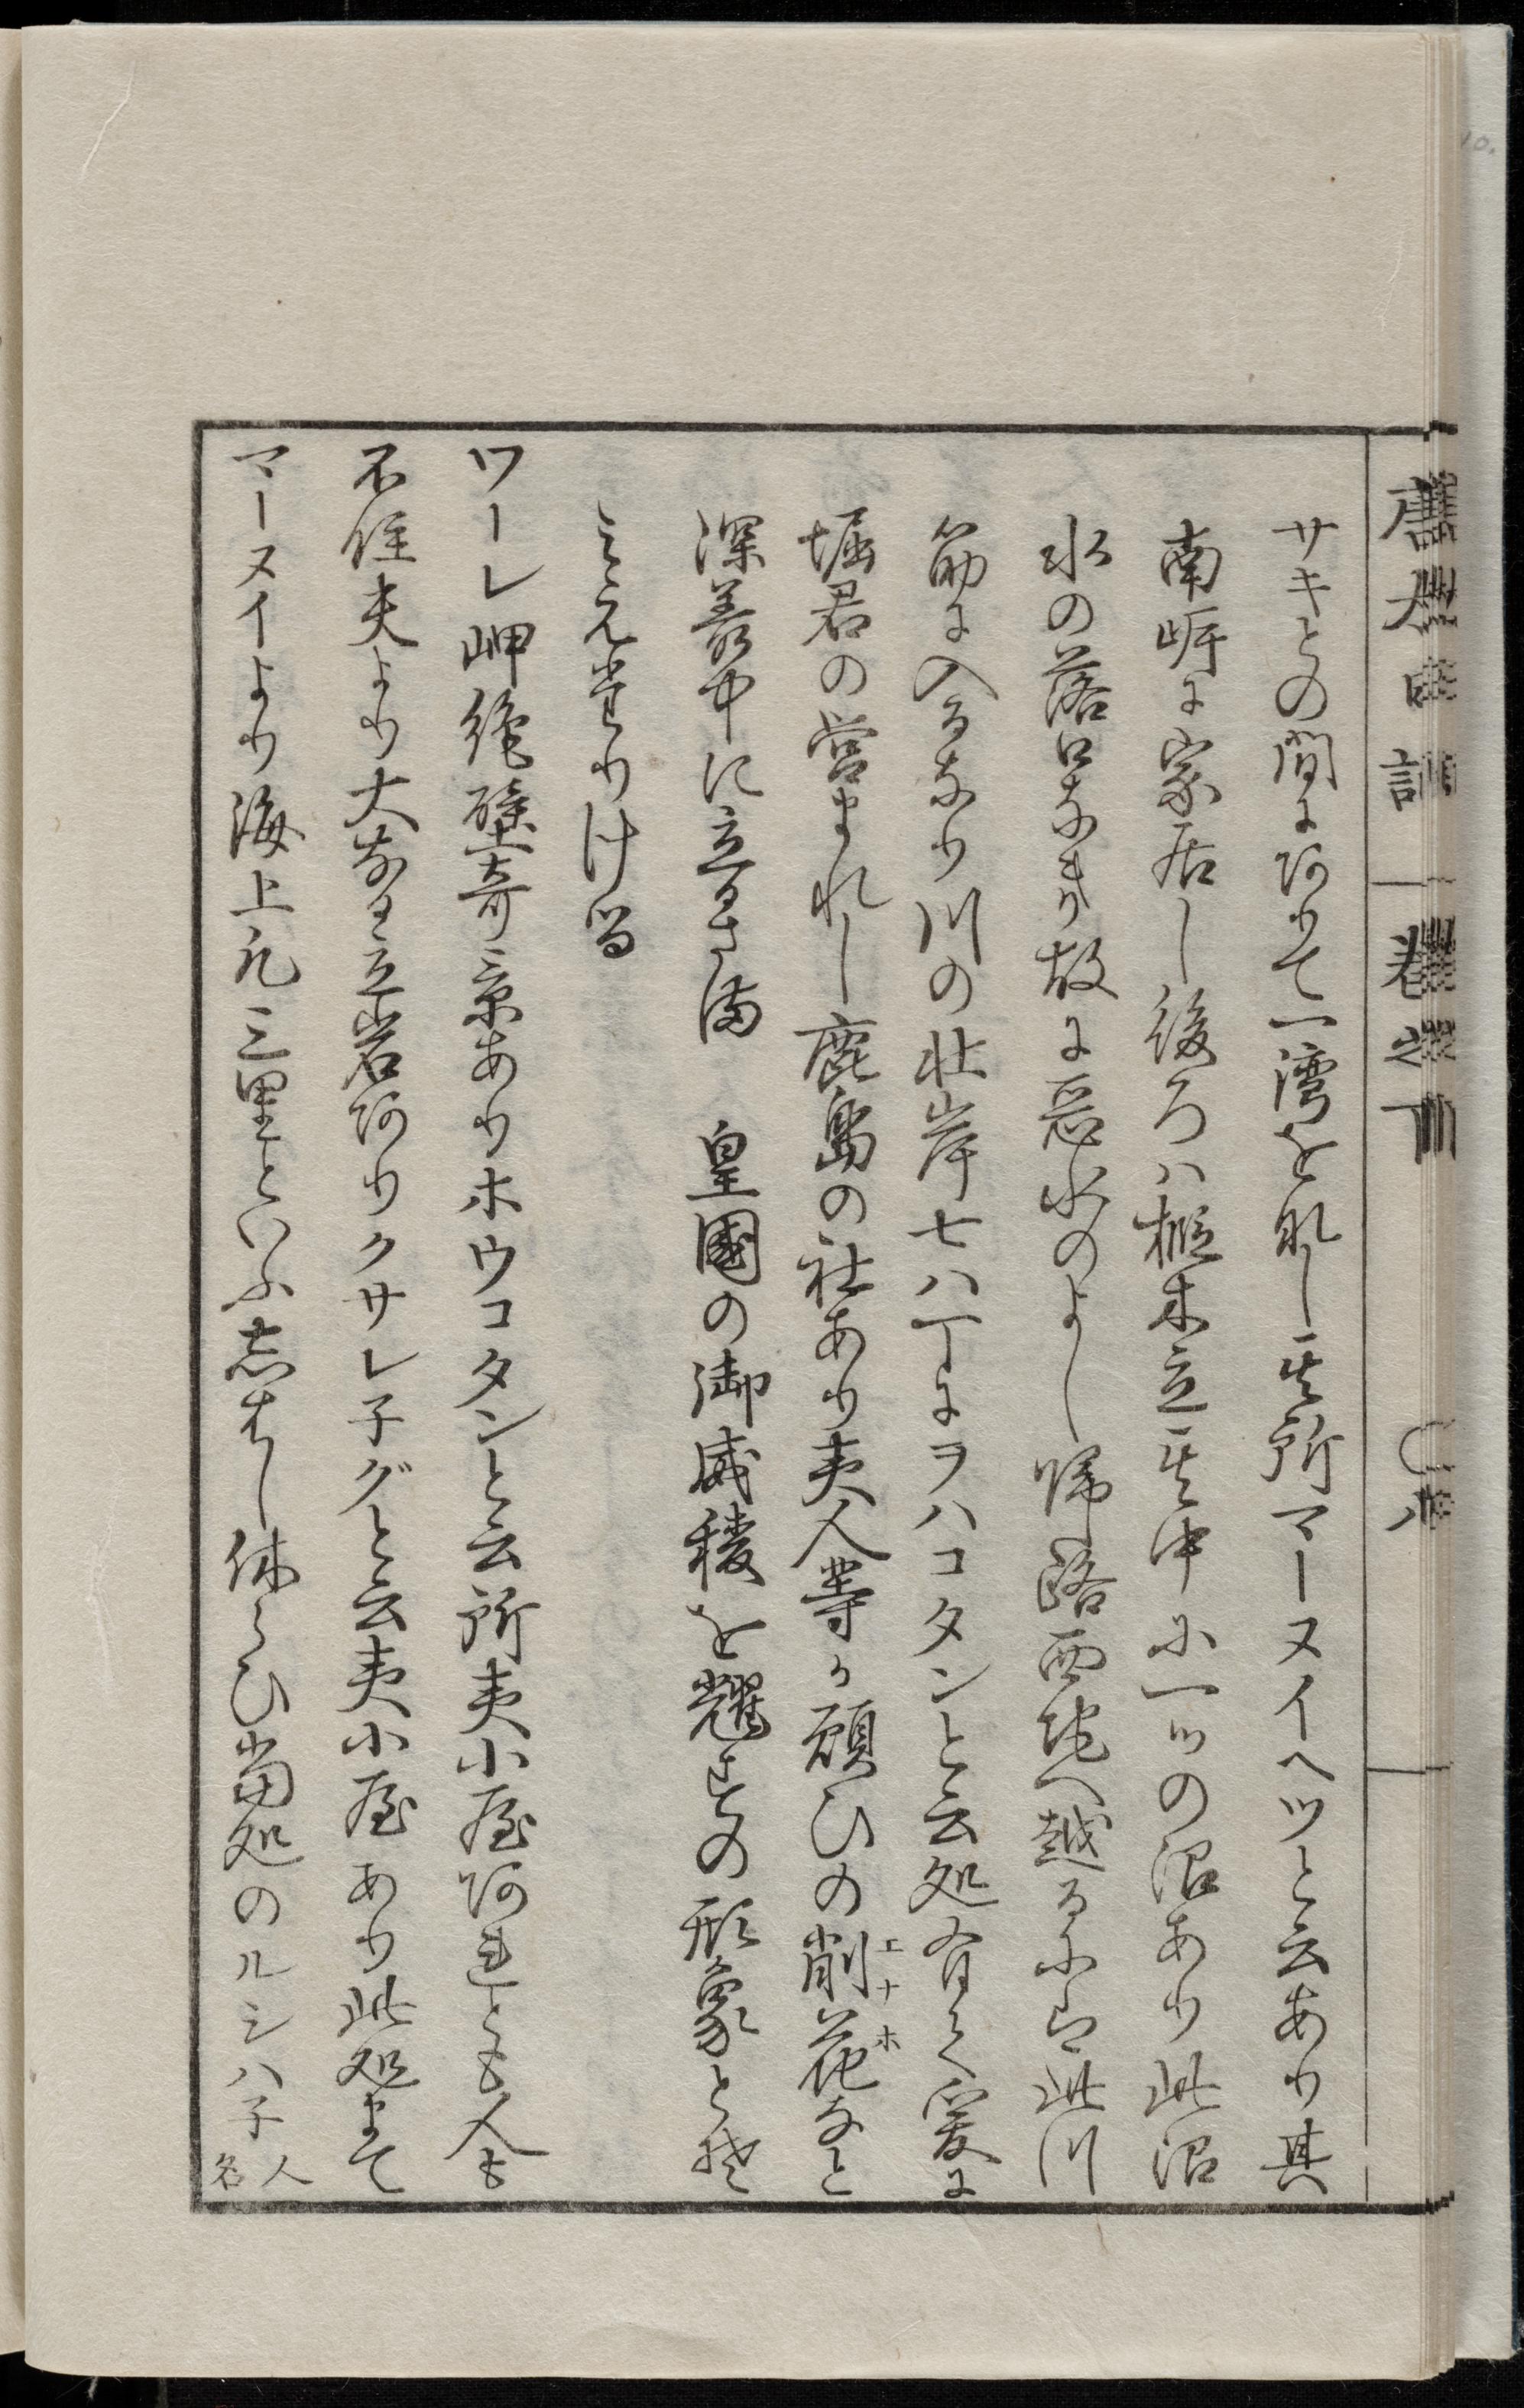 唐太日記 巻之下 〇八
サキとの間に阿りて一湾を那し其所マーヌイヘツと云あり其
南崕に家居し後ろハ椴木立其中に一ツの沼あり此沼
水の落口なき故に惡水のよし帰路西地へ越るにハ此川
筋に入るなり川の北岸七八丁にヲハコタンと云処有て爰に
堀君の営まれし鹿島の社あり夷人等か願ひの削花なと
エナホ
深叢中に立るさま 皇國の御威稜を耀すの形象とそ
ミえ堂りける
ワーレ岬絶壁竒景ありホウコタンと云所夷小屋阿れとも人も
不住夫より大なる立岩阿りクサレ子グと云夷小屋あり此処まて
マーヌイより海上凡三里といふ志はし休らひ當処のルシハ子 人名